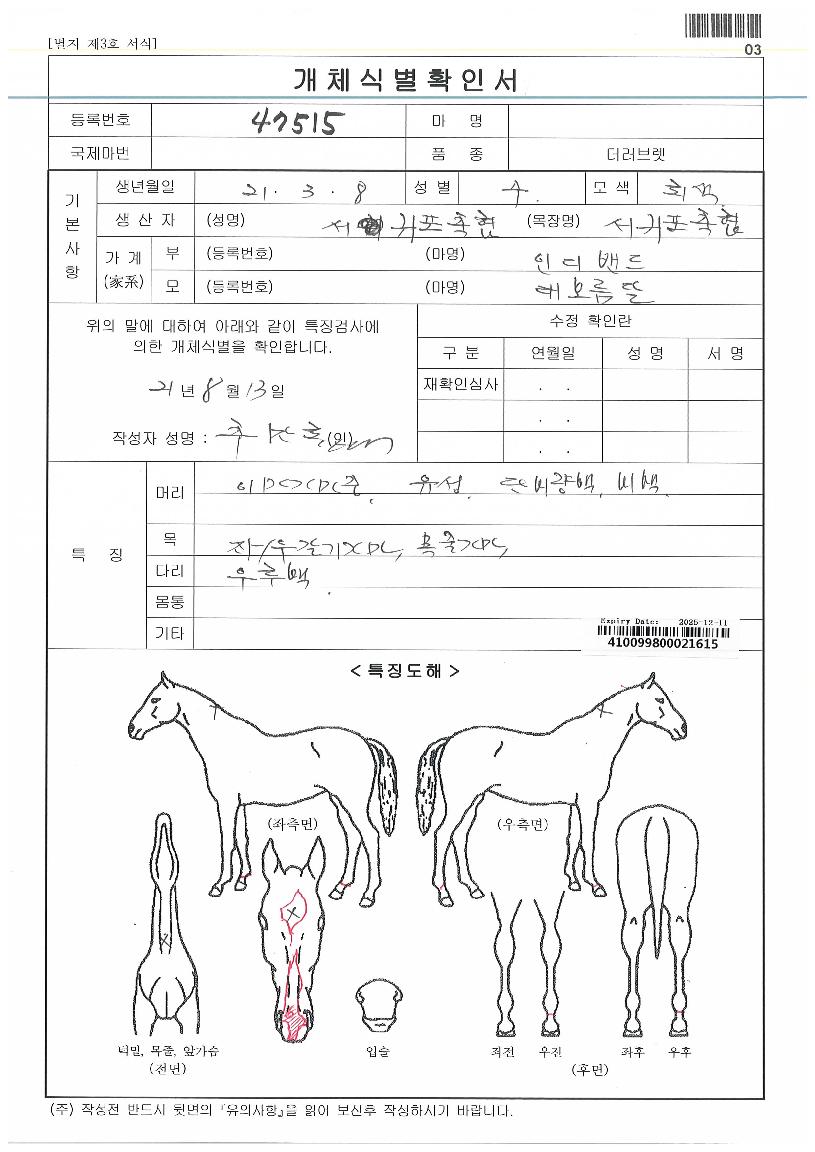 [별지 제3호 서식]
03
개체식별확인서
등록번호 47515 마 명
국제마번 품 종 더러브렛
기본사항
생년월일 21. 3. 8 성별 수 모색
생산자 (성명) 서귀포축협 (목장명) 서귀포축협
가계 (家系) 부 (등록번호) (마명) 인디밴드
모 (등록번호) (마명) 대모름달
위의 말에 대하여 아래와 같이 특징검사에
의한 개체식별을 확인합니다.
21년 8월 13일
작성자 성명 : (인)
수정 확인란
구분 연월일 성명 서명
재확인심사 . .
. .
. .
특 징
머리 유성.
목
다리
몸통
기타
Expiry Date: 2025-12-11
410099800021615
< 특징도해 >
(좌측면) (우측면)
턱밑, 목줄, 앞가슴 입술 좌전 우전 좌후 우후
(전면) (후면)
(주) 작성전 반드시 뒷면의 『유의사항』을 읽어 보신후 작성하시기 바랍니다.